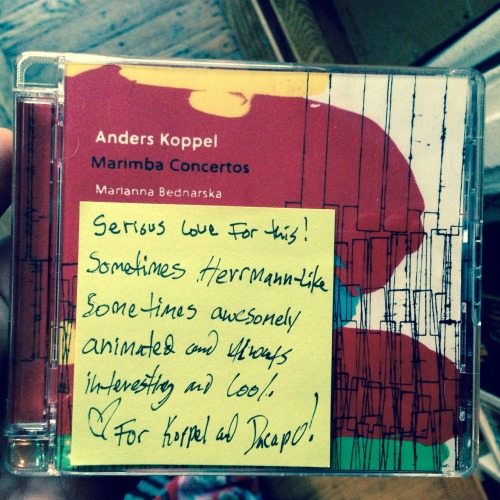 Anders Koppel
Marimba Concertos
Marianna Bednarska
Serious Love For this!
Sometimes Herrmann-Like
Sometimes awesomely
animated and always
interesting and cool.
♡ For Koppel and Dacapo!